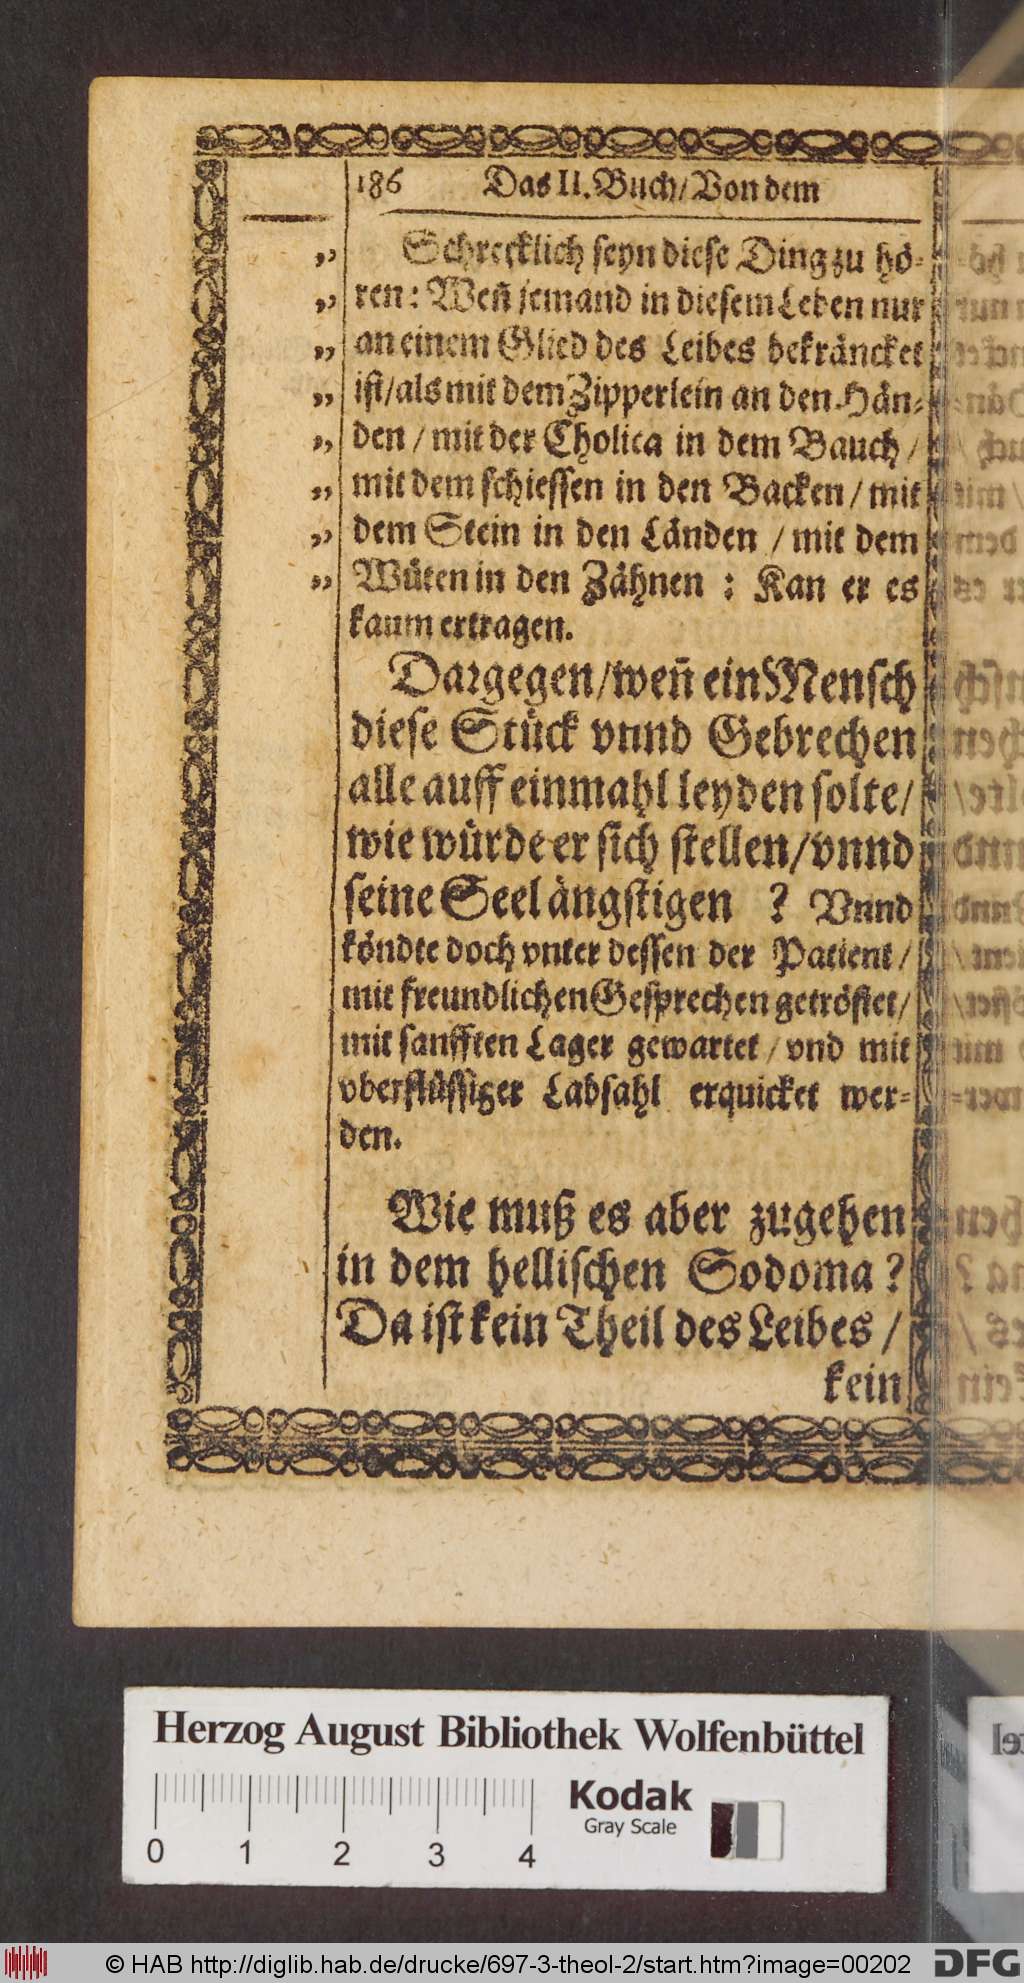 186 Das II. Buch/Von dem
„ Schrecklich seyn diese Ding zu hö-
„ ren: Weñ jemand in diesem Leben nur
„ an einem Glied des Leibes bekräncket
„ ist/als mit dem Zipperlein an den Hän-
„ den/mit der Cholica in dem Bauch/
„ mit dem schiessen in den Backen/mit
„ dem Stein in den Länden/mit dem
„ Wüten in den Zähnen : Kan er es
kaum ertragen.
Dargegen/weñ ein Mensch
diese Stück vnnd Gebrechen
alle auff einmahl leyden solte/
wie würde er sich stellen/vnnd
seine Seel ängstigen ? Vnnd
köndte doch vnter dessen der Patient/
mit freundlichen Gesprechen getröstet/
mit sanfften Lager gewartet/vnd mit
vberflüssiger Labsahl erquicket wer-
den.
Wie muß es aber zugehen
in dem hellischen Sodoma ?
Da ist kein Theil des Leibes/
kein
Herzog August Bibliothek Wolfenbüttel
Kodak
Gray Scale
0 1 2 3 4
© HAB http://diglib.hab.de/drucke/697-3-theol-2/start.htm?image=00202
DFG